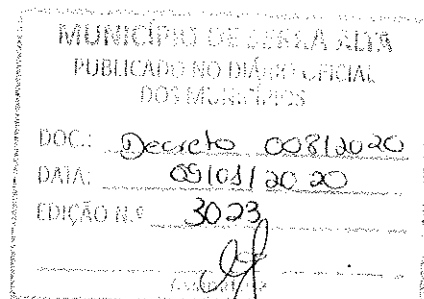 MUNICÍPIO DE SERRA ALTA
PUBLICADO NO DIÁRIO OFICIAL
DOS MUNICÍPIOS
DOC.: Decreto 008/2020
DATA: 09/01/2020
EDIÇÃO N.º 3023